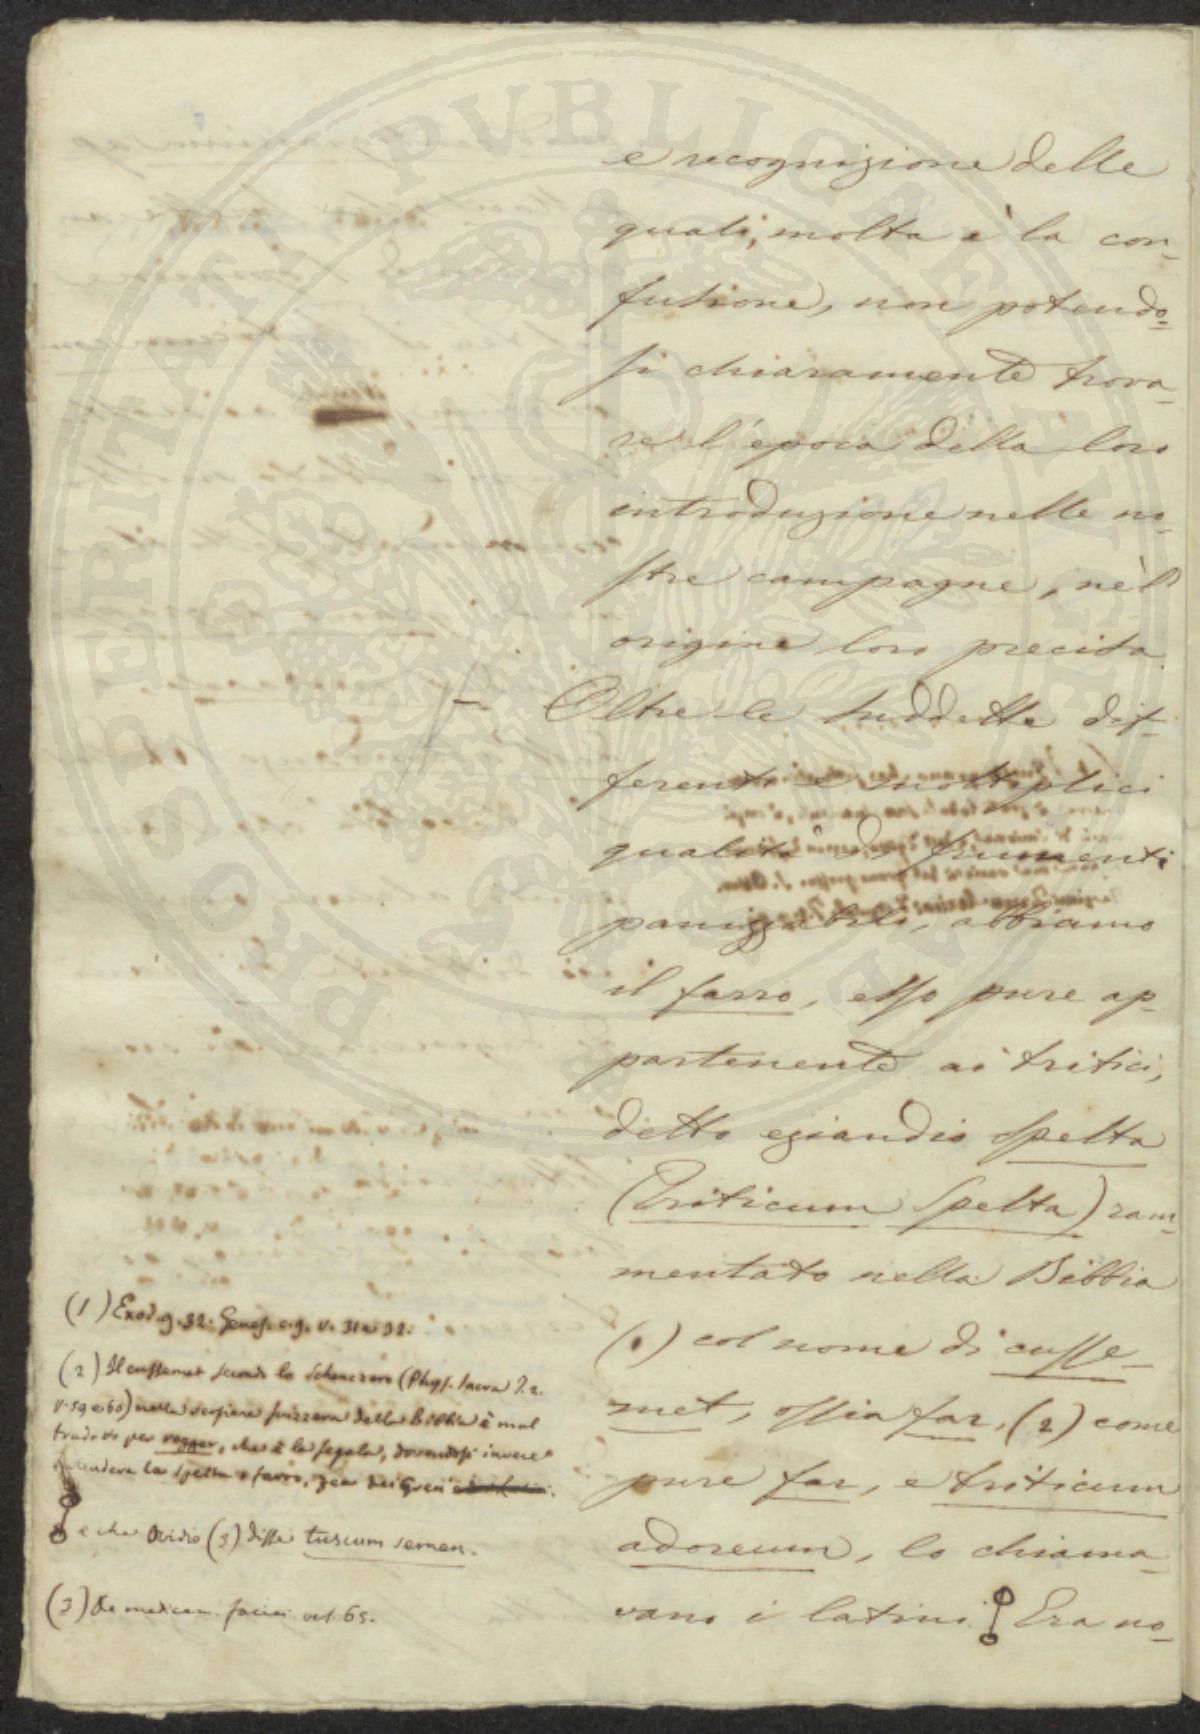 e recognizione delle
quali, molta è la con-
fusione, non potendo-
si chiaramente trova-
re l'epoca della loro
introduzione nelle no-
stre campagne, nè l'
origine loro precisa.
Oltre le suddette dif-
ferenti e moltiplici
qualità di frumenti
panizzabili, abbiamo
il farro, esso pure ap-
partenente ai tritici,
detto eziandio spelta
(Triticum Spelta) ram-
mentato nella Bibbia
(1) col nome di cusse-
met, ossia far, (2) come
pure far, e triticum
adoreum, lo chiama-
vano i latini. Era no-
(1) Exod. 9. 32. Genes. c. 9. v. 31 a 32.
(2) Il cussemet secondo lo Scheuzero (Phys. Sacra T. 2.
v. 59 e 60) nella versione svizzera della Bibbia è mal
tradotto per rogger, che è la segala, dovendosi invece
intendere la spelta o farro, zea dei Greci
e che Ovidio (3) disse tuscum semen.
(3) De medicam. faciei vers. 65.
PROSPERITATI PUBLICAE AUGENDAE